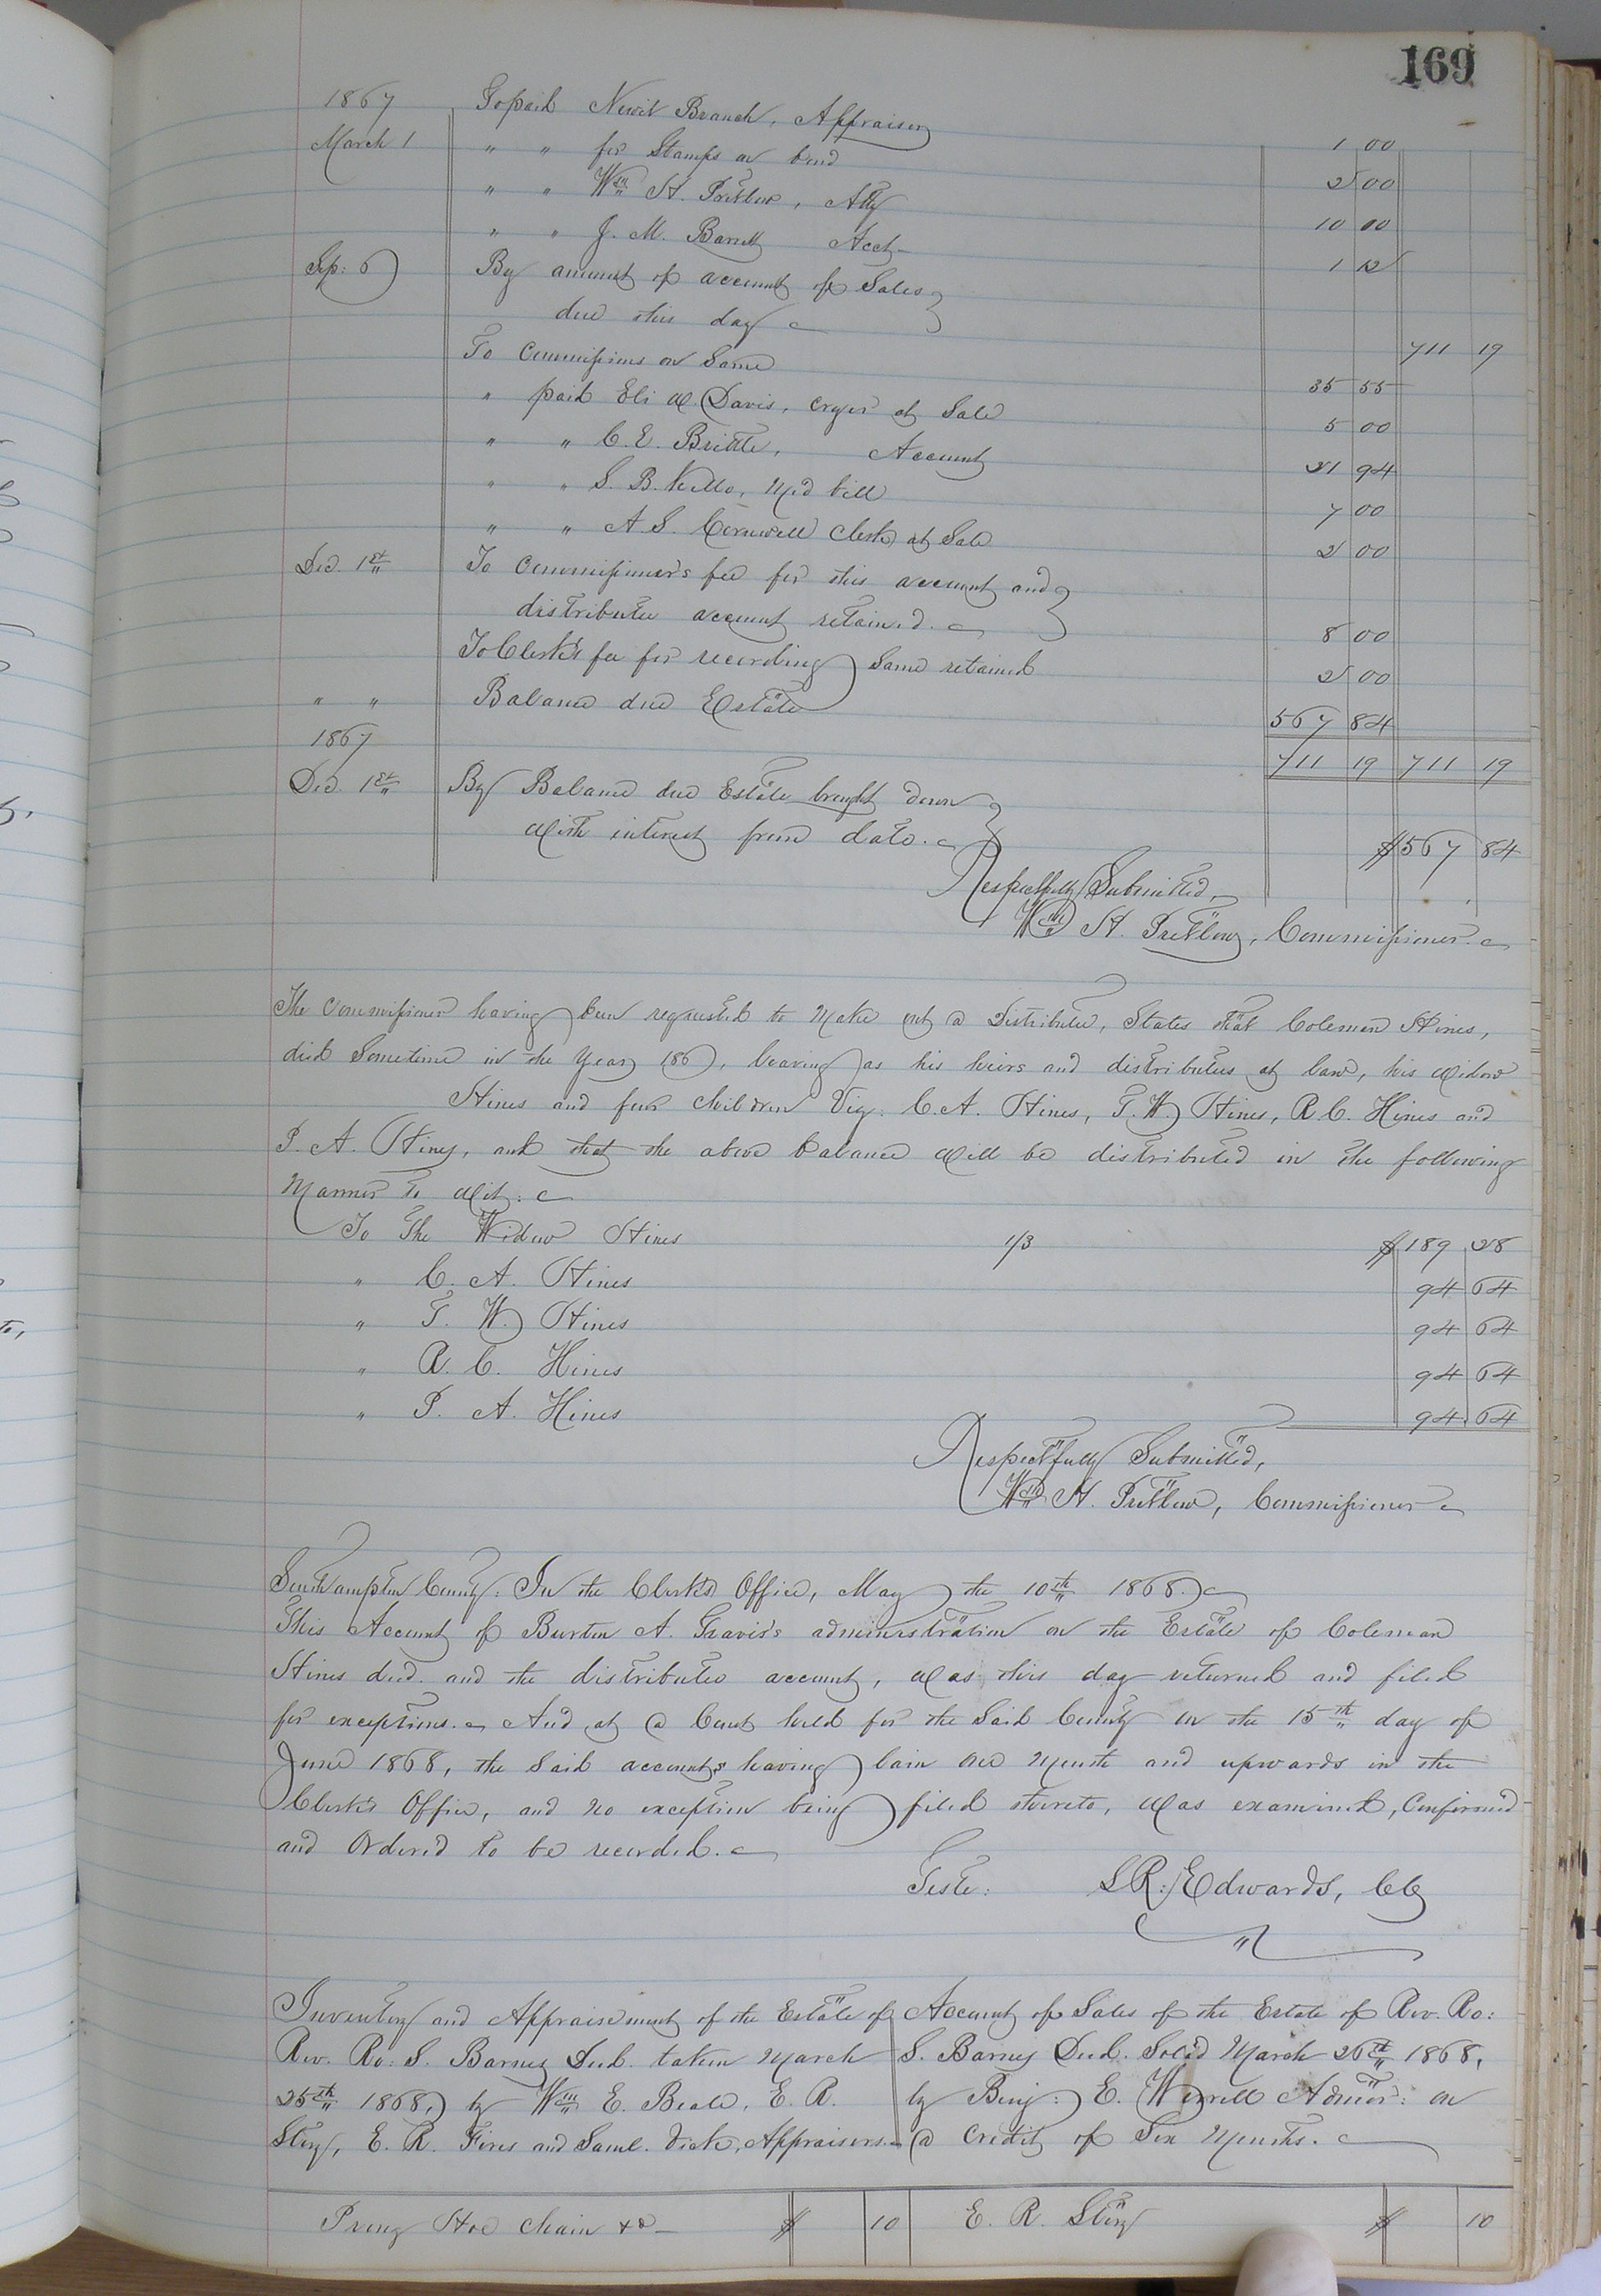 169
1867 To paid Newit Branch, Appraiser 1 00
March 1 " " for Stamps on bond 2 00
" " Wm H. Pretlow, Atty 10 00
" " J. M. Barrett Acct 1 12
Sep: 6 By amount of account of Sales
due this day 711 19
To Commissions on Same 35 55
" paid Eli W. Davis, cryer at Sale 5 00
" " C. E. Brittle, Account 21 94
" " S. B. Kello, Med bill 7 00
" " A. S. Cornwell Clerk at Sale 2 00
Dec. 1st To Commissioner's fee for this account and
distributee account retained. 8 00
To Clerk's fee for recording Same retained 2 00
" " Balance due Estate 567 84
1867 711 19 711 19
Dec. 1st By Balance due Estate brought down
with interest from date. $567 84
Respectfully Submitted,
Wm H. Pretlow, Commissioner.
The Commissioner having been requested to Make out a Distributee, States that Coleman Hines,
died Sometime in the Year 186, leaving as his heirs and distributees at law, his widow
Hines and four children Viz: C. A. Hines, T. W. Hines, R. C. Hines and
P. A. Hines, and that the above balance will be distributed in the following
Manner to wit:
To The Widow Hines 1/3 $189 28
" C. A. Hines 94 64
" T. W. Hines 94 64
" R. C. Hines 94 64
" P. A. Hines 94 64
Respectfully Submitted,
Wm H. Pretlow, Commissioner
Southampton County: In the Clerk's Office, May the 10th 1868.
This Account of Burton A. Gravis's administration on the Estate of Coleman
Hines decd. and the distributee account, was this day returned and filed
for exceptions. And at a Court held for the Said County on the 15th day of
June 1868, the Said accounts having lain one Month and upwards in the
Clerk's Office, and no exception being filed thereto, was examined, Confirmed
and Ordered to be recorded.
Teste: L R: Edwards, CC
Inventory and Appraisement of the Estate of
Rev. Ro: S. Barnes Decd. taken March
25th 1868, by Wm E. Beale, E. R.
and Saml. Appraisers.
Account of Sales of the Estate of Rev. Ro:
S. Barnes Decd. Sold March 26th 1868,
by Benj: E. Worrell Admor: on
a Credit of Six Months.
Prong Hoe Chain &c $ 10 E. R. $ 10